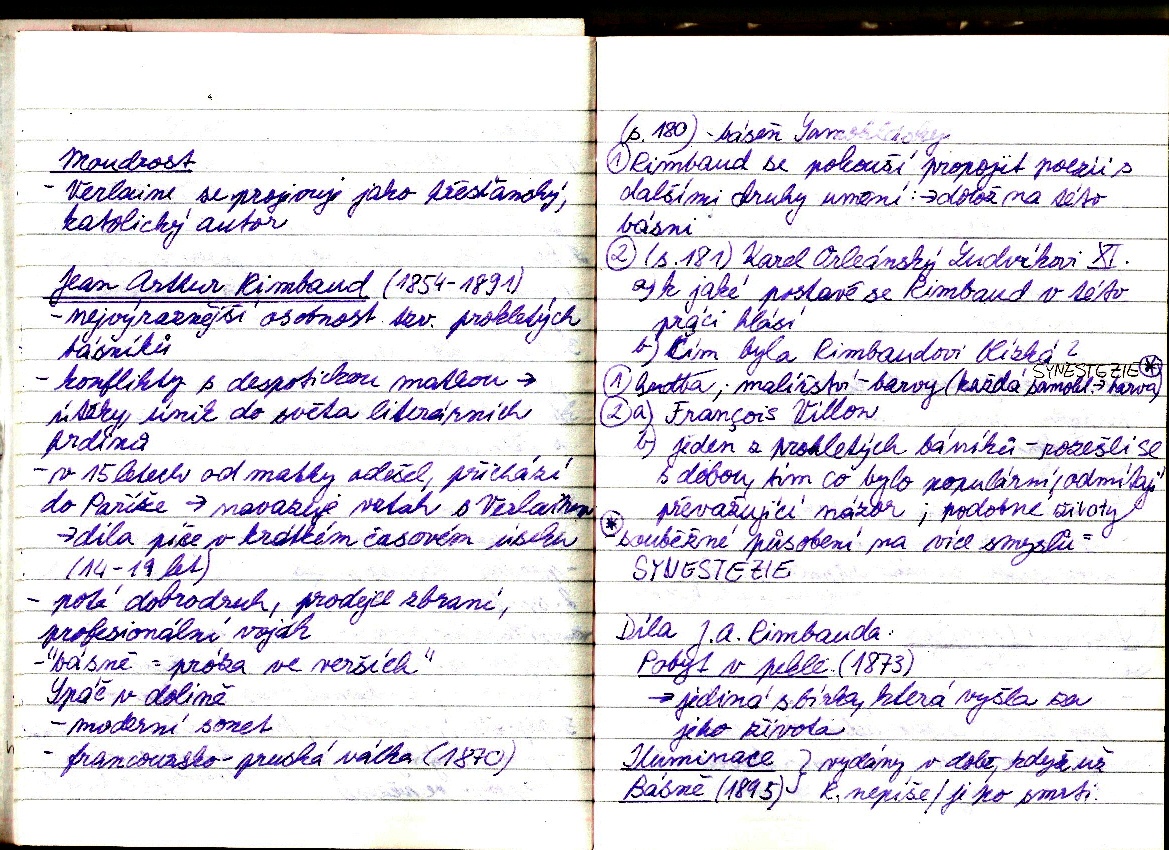 Moudrost
- Verlaine se projevuje jako křesťanský,
katolický autor
Jean Arthur Rimbaud (1854-1891)
- nejvýraznější osobnost tzv. prokletých
básníků
- konflikty s despotickou matkou →
útěky únik do světa literárních
hrdinů
- v 15 letech od matky odešel, přichází
do Paříže → navazuje vztah s Verlainem
→ díla píše v krátkém časovém úseku
(14-19 let)
- poté dobrodruh, prodejce zbraní,
profesionální voják
- "básně = próza ve verších"
Spáč v dolině
- moderní sonet
- francouzsko-pruská válka (1870)
(s. 180) - báseň Samohlásky
① Rimbaud se pokouší propojit poezii s
dalšími druhy umění: → dolož na této
básni
② (s. 181) Karel Orleánský Ludvíkovi XI.
a) k jaké postavě se Rimbaud v této
práci hlásí
b) Čím byla Rimbaudovi blízká?
SYNESTEZIE *
① hudba, malířství - barvy (každá samohl. → barva)
② a) François Villon
b) jeden z prokletých báníků - rozešli se
s dobou, tím co bylo populární, odmítají
převažující názor; podobné životy
* souběžné působení na více smyslů =
SYNESTEZIE
Díla J. A. Rimbauda:
Pobyt v pekle (1873)
→ jediná sbírka, která vyšla za
jeho života
Iluminace } vydány v době, když už
Básně (1895) R. nepíše / je po smrti.